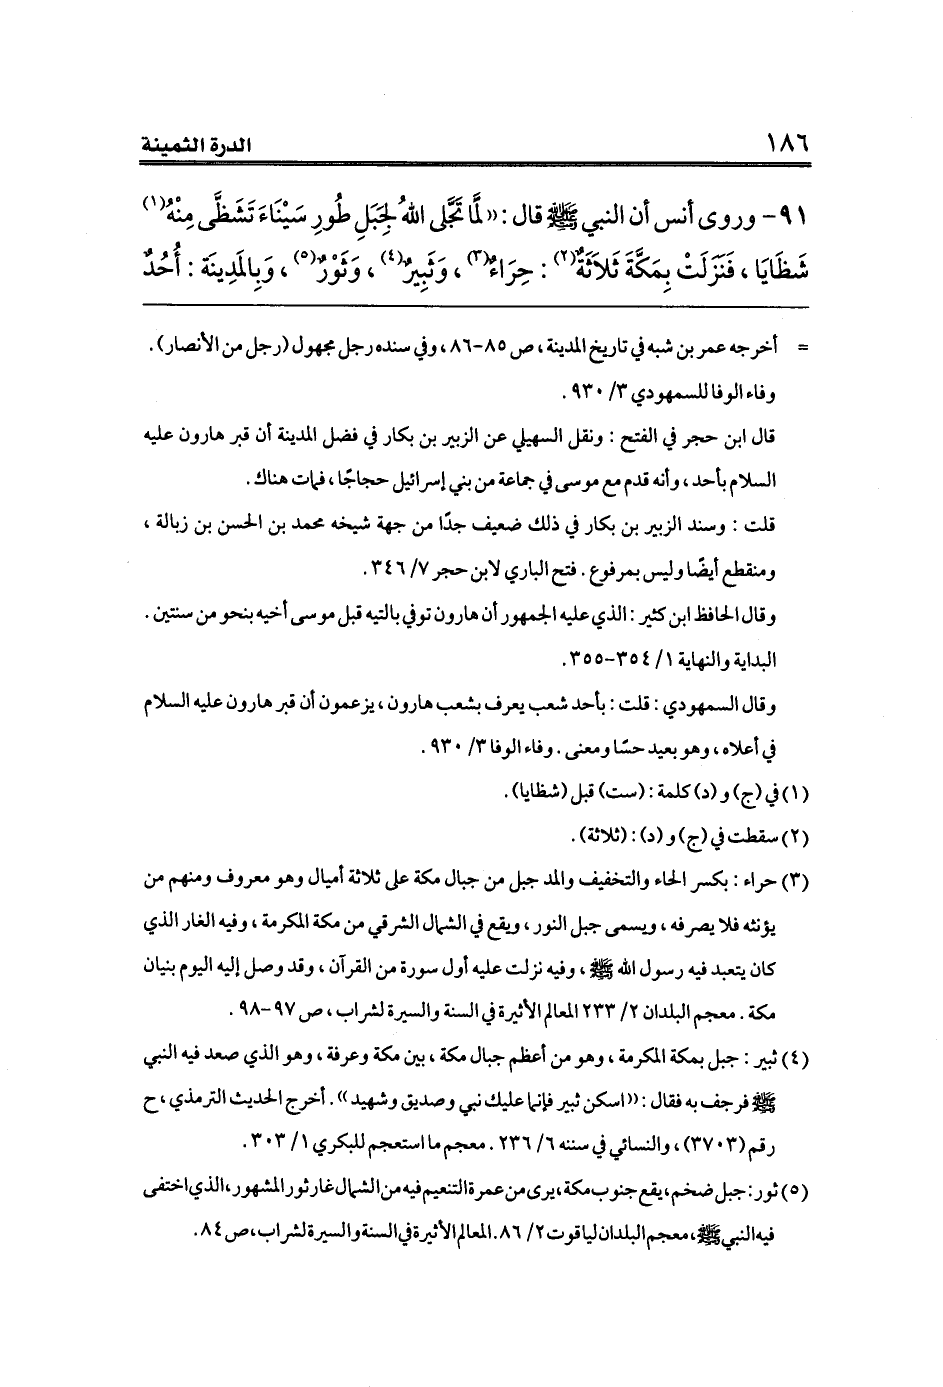 ١٨٦ الدرة الثمينة
٩١- وروى أنس أن النبي ﷺ قال : «لمَّا تَجَلَّى اللهُ لِجَبَلِ طُورِ سَيْنَاءَ تَشَظَّى مِنْهُ(١)
شَظَايَا ، فَنَزَلَتْ بِمَكَّةَ ثَلَاثَةٌ(٢) : حِرَاءٌ(٣) ، وَثَبِيرٌ(٤) ، وَثَوْرٌ(٥) ، وَبِالمَدِينَة : أُحُدٌ
= أخرجه عمر بن شبه في تاريخ المدينة ، ص ٨٥-٨٦ ، وفي سنده رجل مجهول (رجل من الأنصار) .
وفاء الوفا للسمهودي ٣/ ٩٣٠ .
قال ابن حجر في الفتح : ونقل السهيلي عن الزبير بن بكار في فضل المدينة أن قبر هارون عليه
السلام بأحد ، وأنه قدم مع موسى في جماعة من بني إسرائيل حجاجًا ، فمات هناك .
قلت : وسند الزبير بن بكار في ذلك ضعيف جدًا من جهة شيخه محمد بن الحسن بن زبالة ،
ومنقطع أيضًا وليس بمرفوع . فتح الباري لابن حجر ٧/ ٣٤٦ .
وقال الحافظ ابن كثير : الذي عليه الجمهور أن هارون توفي بالتيه قبل موسى أخيه بنحو من سنتين .
البداية والنهاية ١/ ٣٥٤-٣٥٥ .
وقال السمهودي : قلت : بأحد شعب يعرف بشعب هارون ، يزعمون أن قبر هارون عليه السلام
في أعلاه ، وهو بعيد حسًا ومعنى . وفاء الوفا ٣/ ٩٣٠ .
(١) في (ج) و (د) كلمة : (ست) قبل (شظايا) .
(٢) سقطت في (ج) و (د) : (ثلاثة) .
(٣) حراء : بكسر الحاء والتخفيف والمد جبل من جبال مكة على ثلاثة أميال وهو معروف ومنهم من
يؤنثه فلا يصرفه ، ويسمى جبل النور ، ويقع في الشمال الشرقي من مكة المكرمة ، وفيه الغار الذي
كان يتعبد فيه رسول الله ﷺ ، وفيه نزلت عليه أول سورة من القرآن ، وقد وصل إليه اليوم بنيان
مكة . معجم البلدان ٢/ ٢٣٣ المعالم الأثيرة في السنة والسيرة لشراب ، ص ٩٧-٩٨ .
(٤) ثبير : جبل بمكة المكرمة ، وهو من أعظم جبال مكة ، بين مكة وعرفة ، وهو الذي صعد فيه النبي
ﷺ فرجف به فقال : «اسكن ثبير فإنما عليك نبي وصديق وشهيد» . أخرج الحديث الترمذي ، ح
رقم (٣٧٠٣) ، والنسائي في سننه ٦/ ٢٣٦ . معجم ما استعجم للبكري ١/ ٣٠٣ .
(٥) ثور : جبل ضخم ، يقع جنوب مكة ، يرى من عمرة التنعيم فيه من الشمال غار ثور المشهور ، الذي اختفى
فيه النبي ﷺ ، معجم البلدان لياقوت ٢/ ٨٦ . المعالم الأثيرة في السنة والسيرة لشراب ، ص ٨٤ .